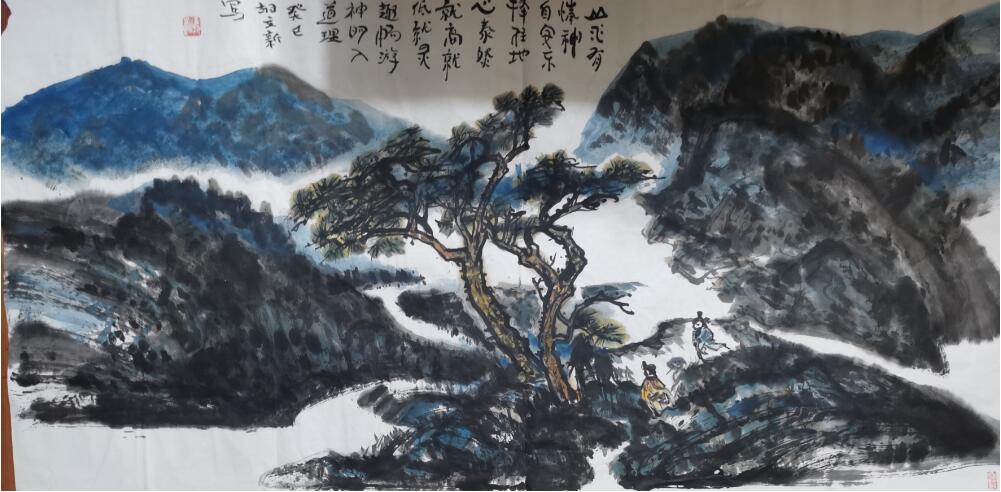 山水有
情神
自寻乐
择胜地
心泰然
就高就
低就灵
趣畅游
神明入
道理
癸巳
胡文新
写